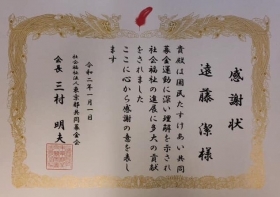 感謝状
遠藤潔様
貴殿は国民たすけあい共同
募金運動に深い理解を示され
社会福祉の進展に多大の貢献
をされました
ここに心から感謝の意を表し
ます
令和二年一月一日
社会福祉法人東京都共同募金会
会長 三村明夫